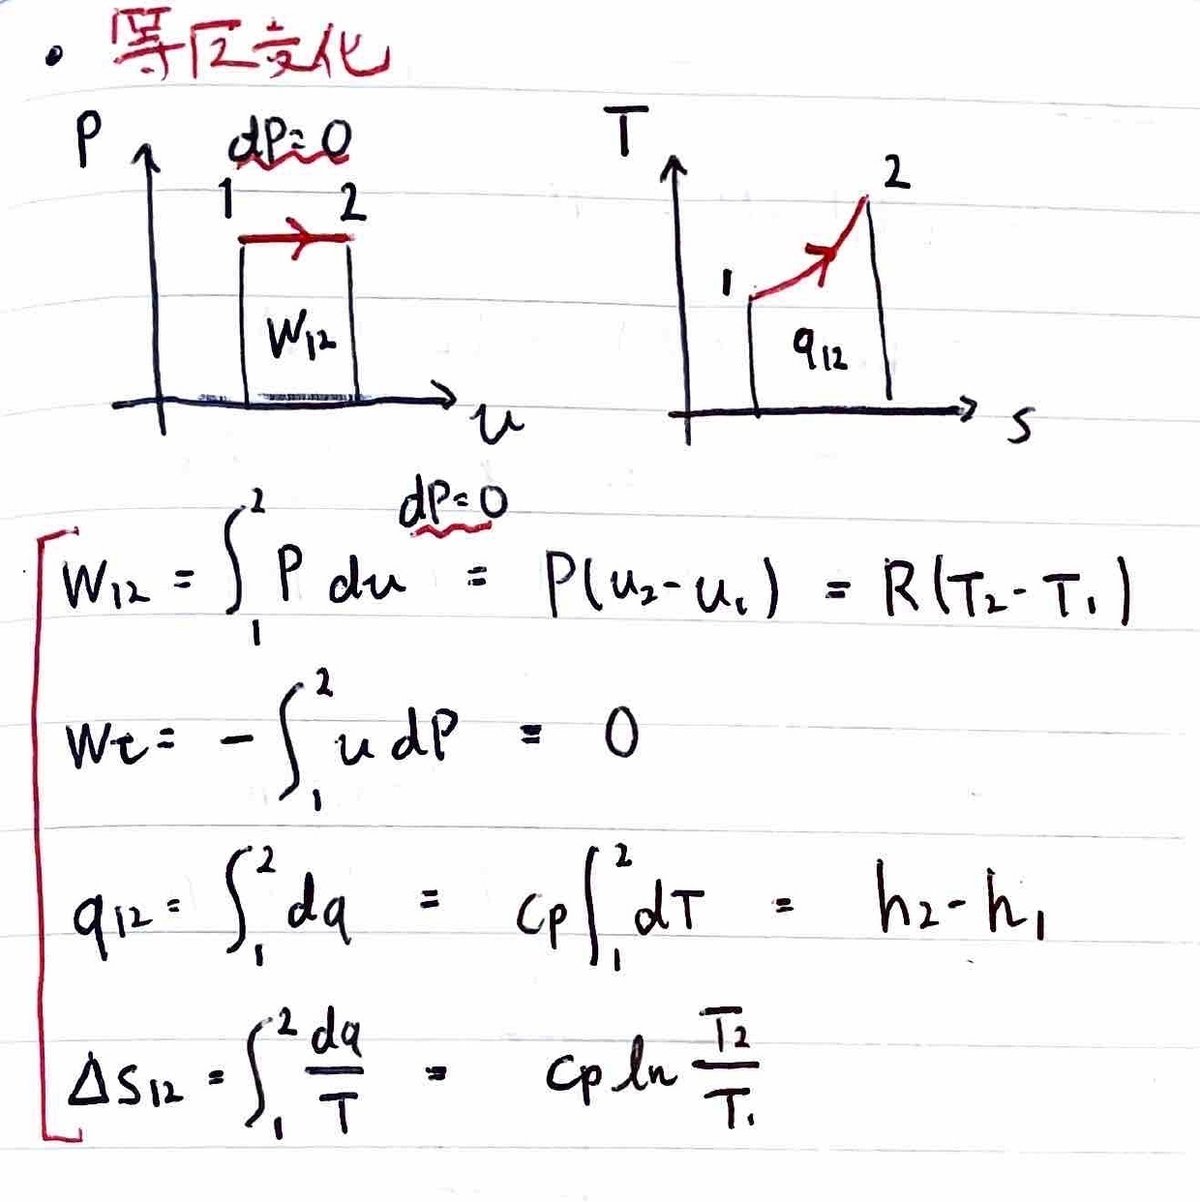 ・等圧変化
P dP=0 T
1 2 2
1
W12 q12
u s
dP=0
W12 = ∫₁² P du = P(u2-u1) = R(T2-T1)
Wt = -∫₁² u dP = 0
q12 = ∫₁² dq = Cp∫₁² dT = h2-h1
ΔS12 = ∫₁² dq/T = Cp ln T2/T1